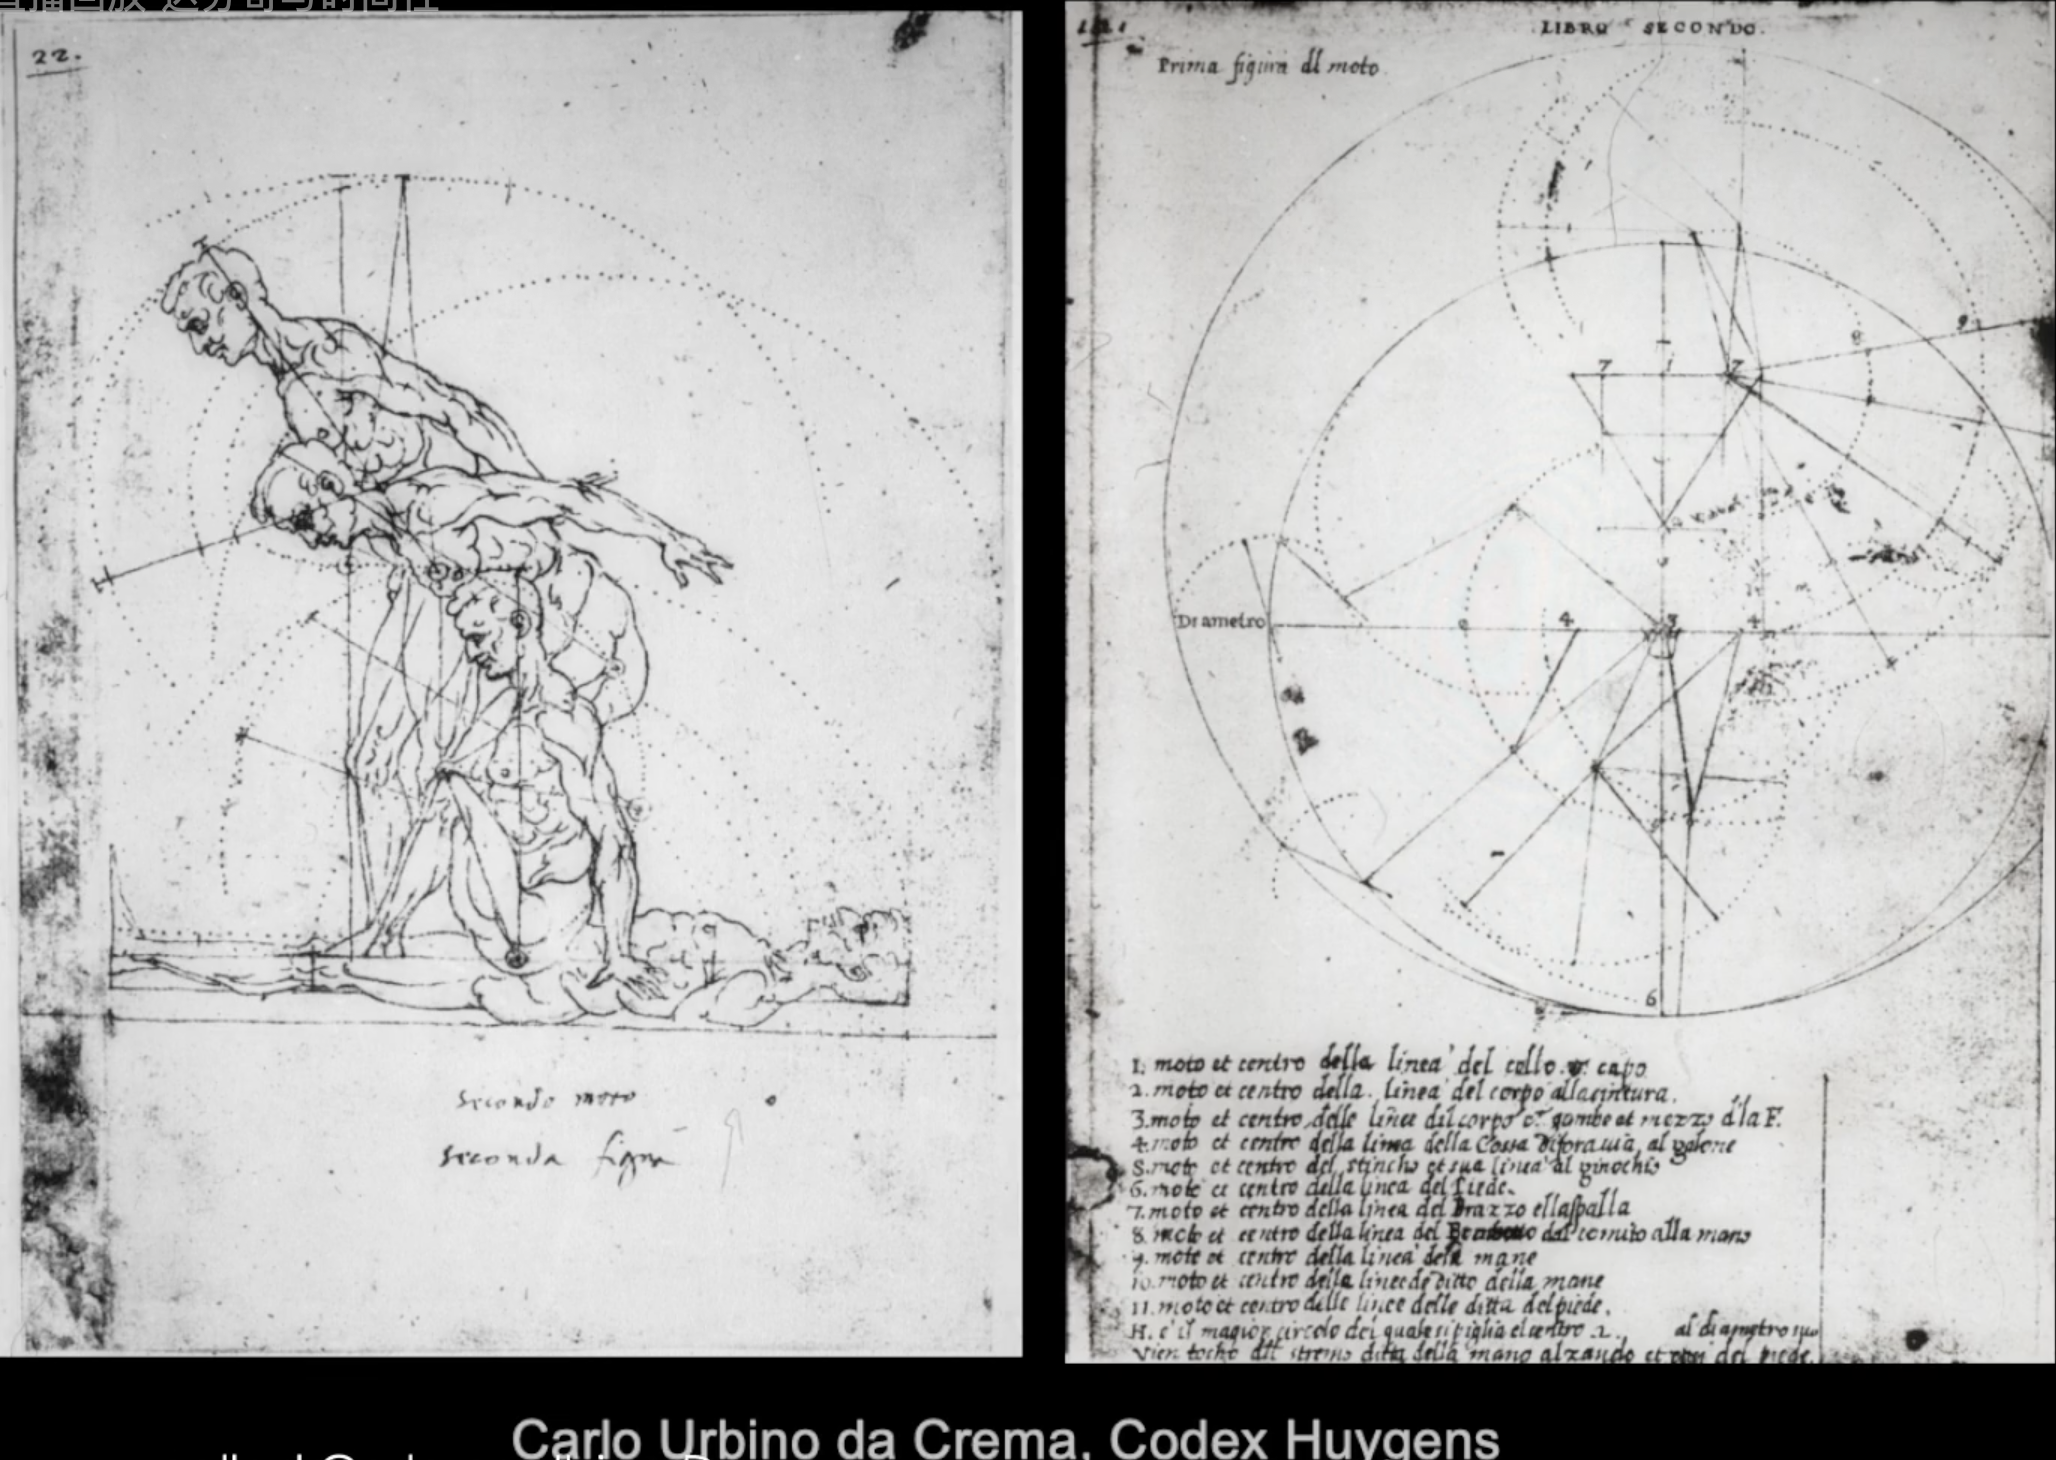 22.
secondo moto
seconda figura
LIBRO SECONDO.
Prima figura dl moto
7 1 7
8 9
Diametro
4 3 4
6
1. moto et centro della linea del collo capo
2. moto et centro della linea del corpo alla cintura.
3. moto et centro delle linee dil corpo gambe et mezzo d'la F.
4. moto et centro della linea della Cossa al galone
5. moto et centro del stincho et sua linea al ginochio
6. moto et centro della linea del Piede.
7. moto et centro della linea del Brazzo ella spalla
8. moto et centro della linea del dal comito alla mano
9. moto et centro della linea dela mane
10. moto et centro della linee de ditto della mane
11. moto et centro delle linee delle ditta del piede.
H. è il magior circolo del quale si piglia el centro 2. al diametro suo
vien tocho dll stremo ditta della mano alzando et del piede.
Carlo Urbino da Crema, Codex Huygens